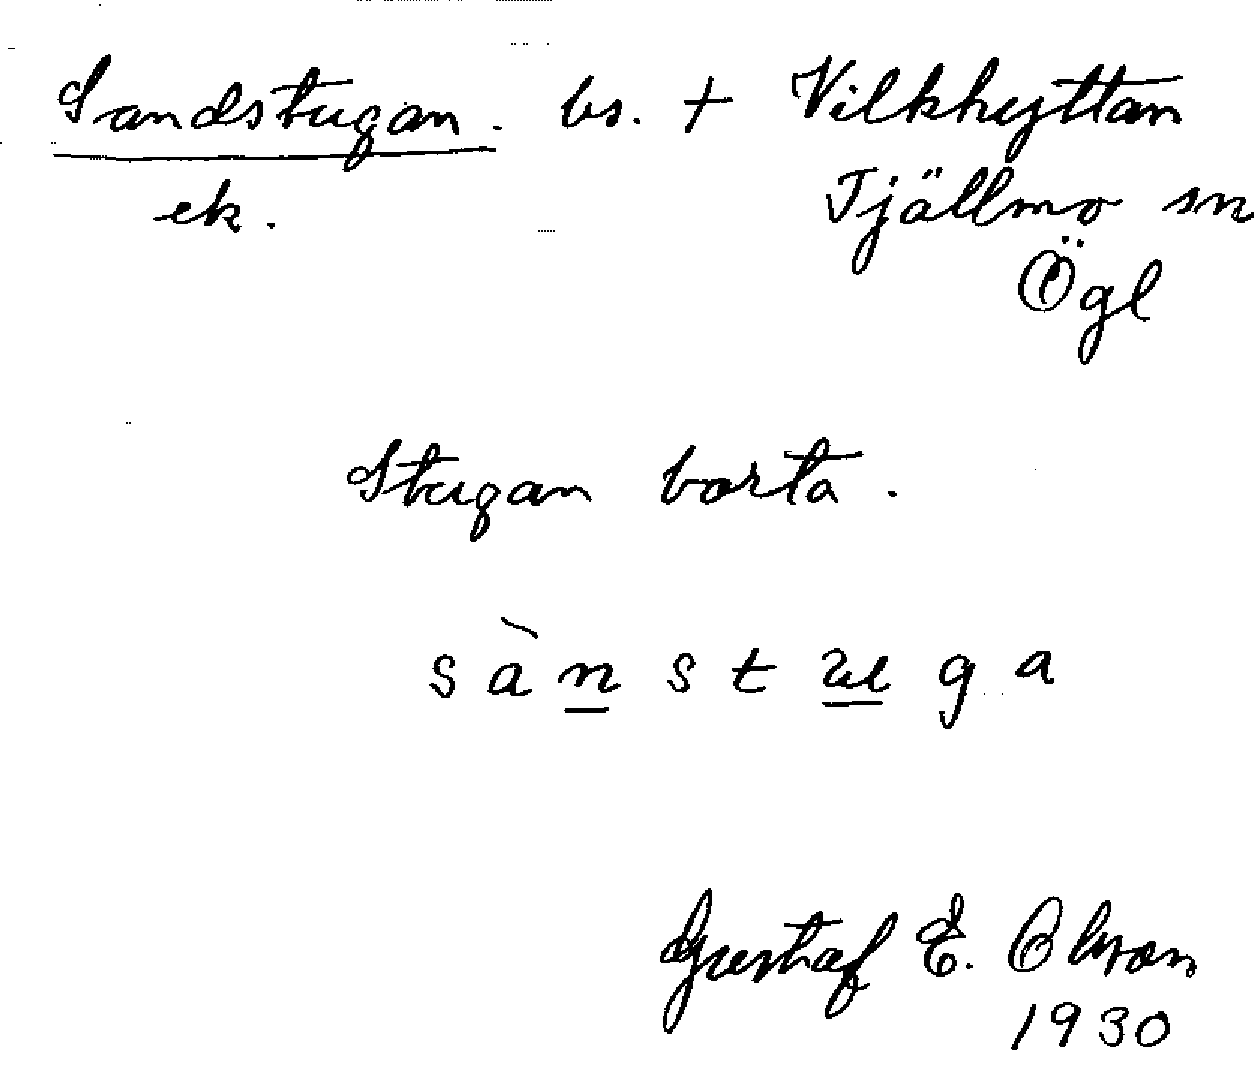 Sandstugan. bs. + Vilkhyttan
ek. Tjällmo sn
Ögl
Stugan borta.
sànstuga
Gustaf E. Olson
1930